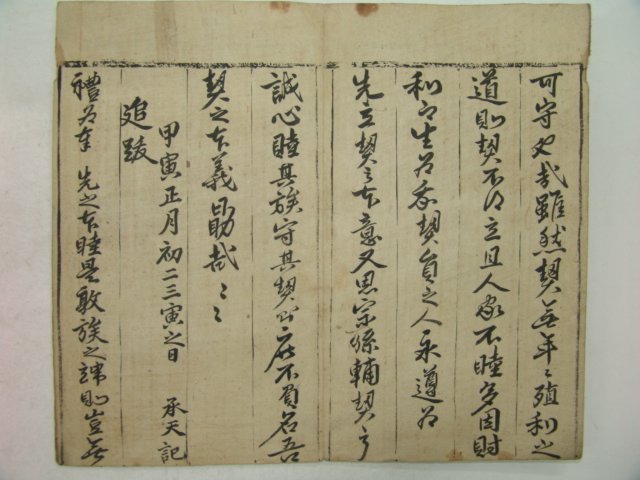 可守也哉雖然契無年〻殖利之
道則契不得立且人家不睦多因財
利而生爲我契員之人永遵爲
先立契之本意又思宗孫輔契之
誠心睦其族守其契而庶不負名吾
契之本義勖哉〻〻
甲寅正月初二三寅之日 承天記
追跋
禮爲奉先之本睦是敦族之 則豈無